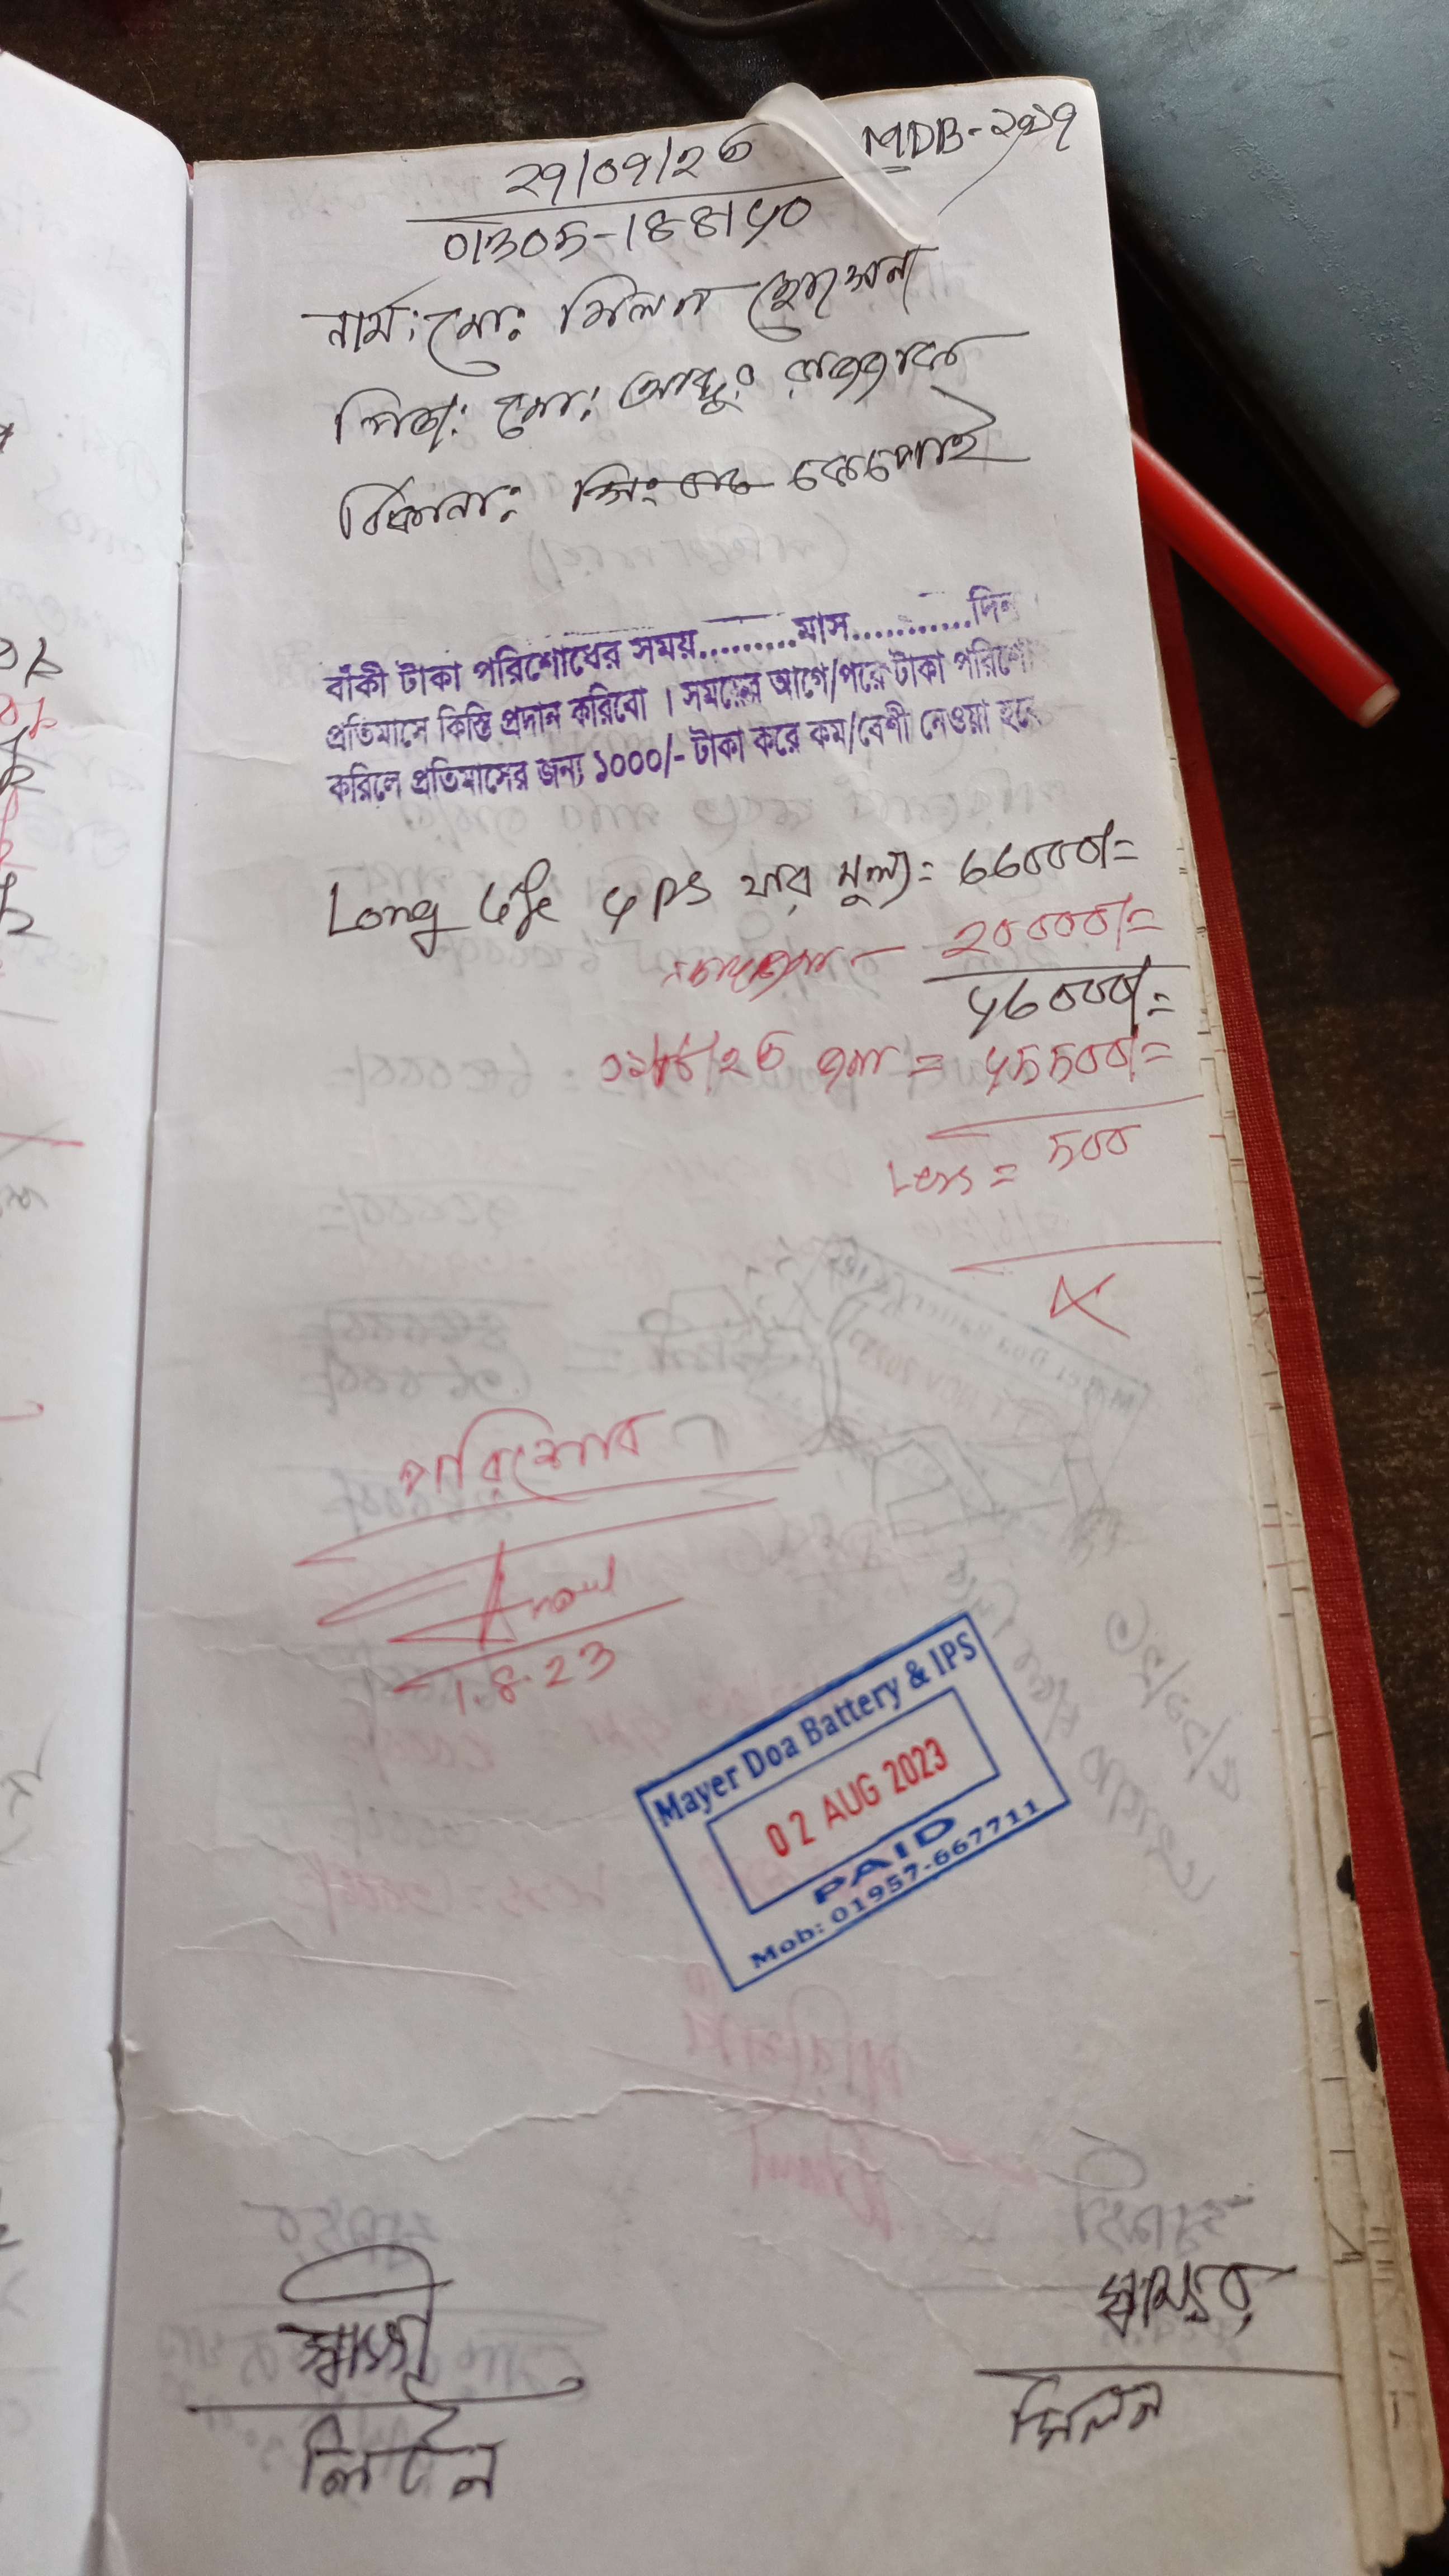 MDB-২৯২৭
২৭/০৭/২৩
নাম: মো: মিলন হোসেন
পিতা: মো: আব্দুর রাজ্জাক
ঠিকানা:
বাঁকী টাকা পরিশোধের সময়.........মাস............দিন
প্রতিমাসে কিস্তি প্রদান করিবো । সময়ের আগে/পরে টাকা পরিশো
করিলে প্রতিমাসের জন্য ১০০০/- টাকা করে কম/বেশী নেওয়া হবে
Long Life যার মূল্য = ৬৬০০০/=
২০০০০/=
৪৬০০০/=
০১/৮/২৩ জমা = ৪৫৫০০/=
Less = ৫০০
পরিশোধ
1.8.23
Mayer Doa Battery & IPS
02 AUG 2023
PAID
Mob: 01957-667711
স্বাক্ষী
লিটন
স্বাক্ষর
মিলন